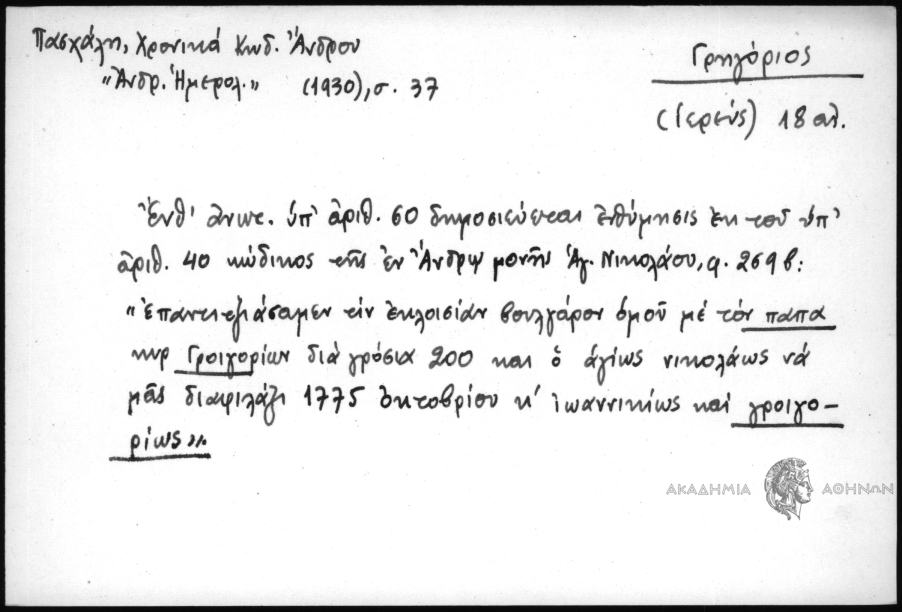 Πασχάλη, Χρονικά Κωδ. Ἄνδρου
"Ἀνδρ. Ἡμερολ." (1930), σ. 37
Γρηγόριος
(ἱερεύς) 18 αι.
Ἔνθ' ἀνωτ. ὑπ' ἀριθ. 60 δημοσιεύεται ἐνθύμησις ἐκ τοῦ ὑπ'
ἀριθ. 40 κώδικος τῆς ἐν Ἄνδρῳ μονῆς Ἁγ. Νικολάου, φ. 269β:
"ἐπαντιτζιάσαμεν τὶν ἐκλοισίαν βουλγάρου ὁμοῦ μέ τόν παπα
κυρ Γροιγορίων διὰ γρόσια 200 και ὁ ἁγίως νικολάως νά
μᾶς διαφιλάξι 1775 ὀκτοβρίου κ' ἰωαννικίως καί γροιγο-
ρίως".
ΑΚΑΔΗΜΙΑ ΑΘΗΝΩΝ